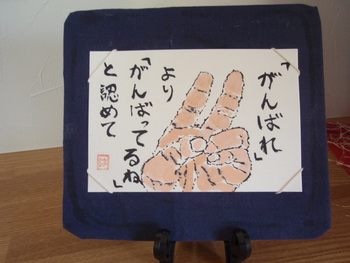 「がんばれ」
より
「がんばってるね」
と認めて